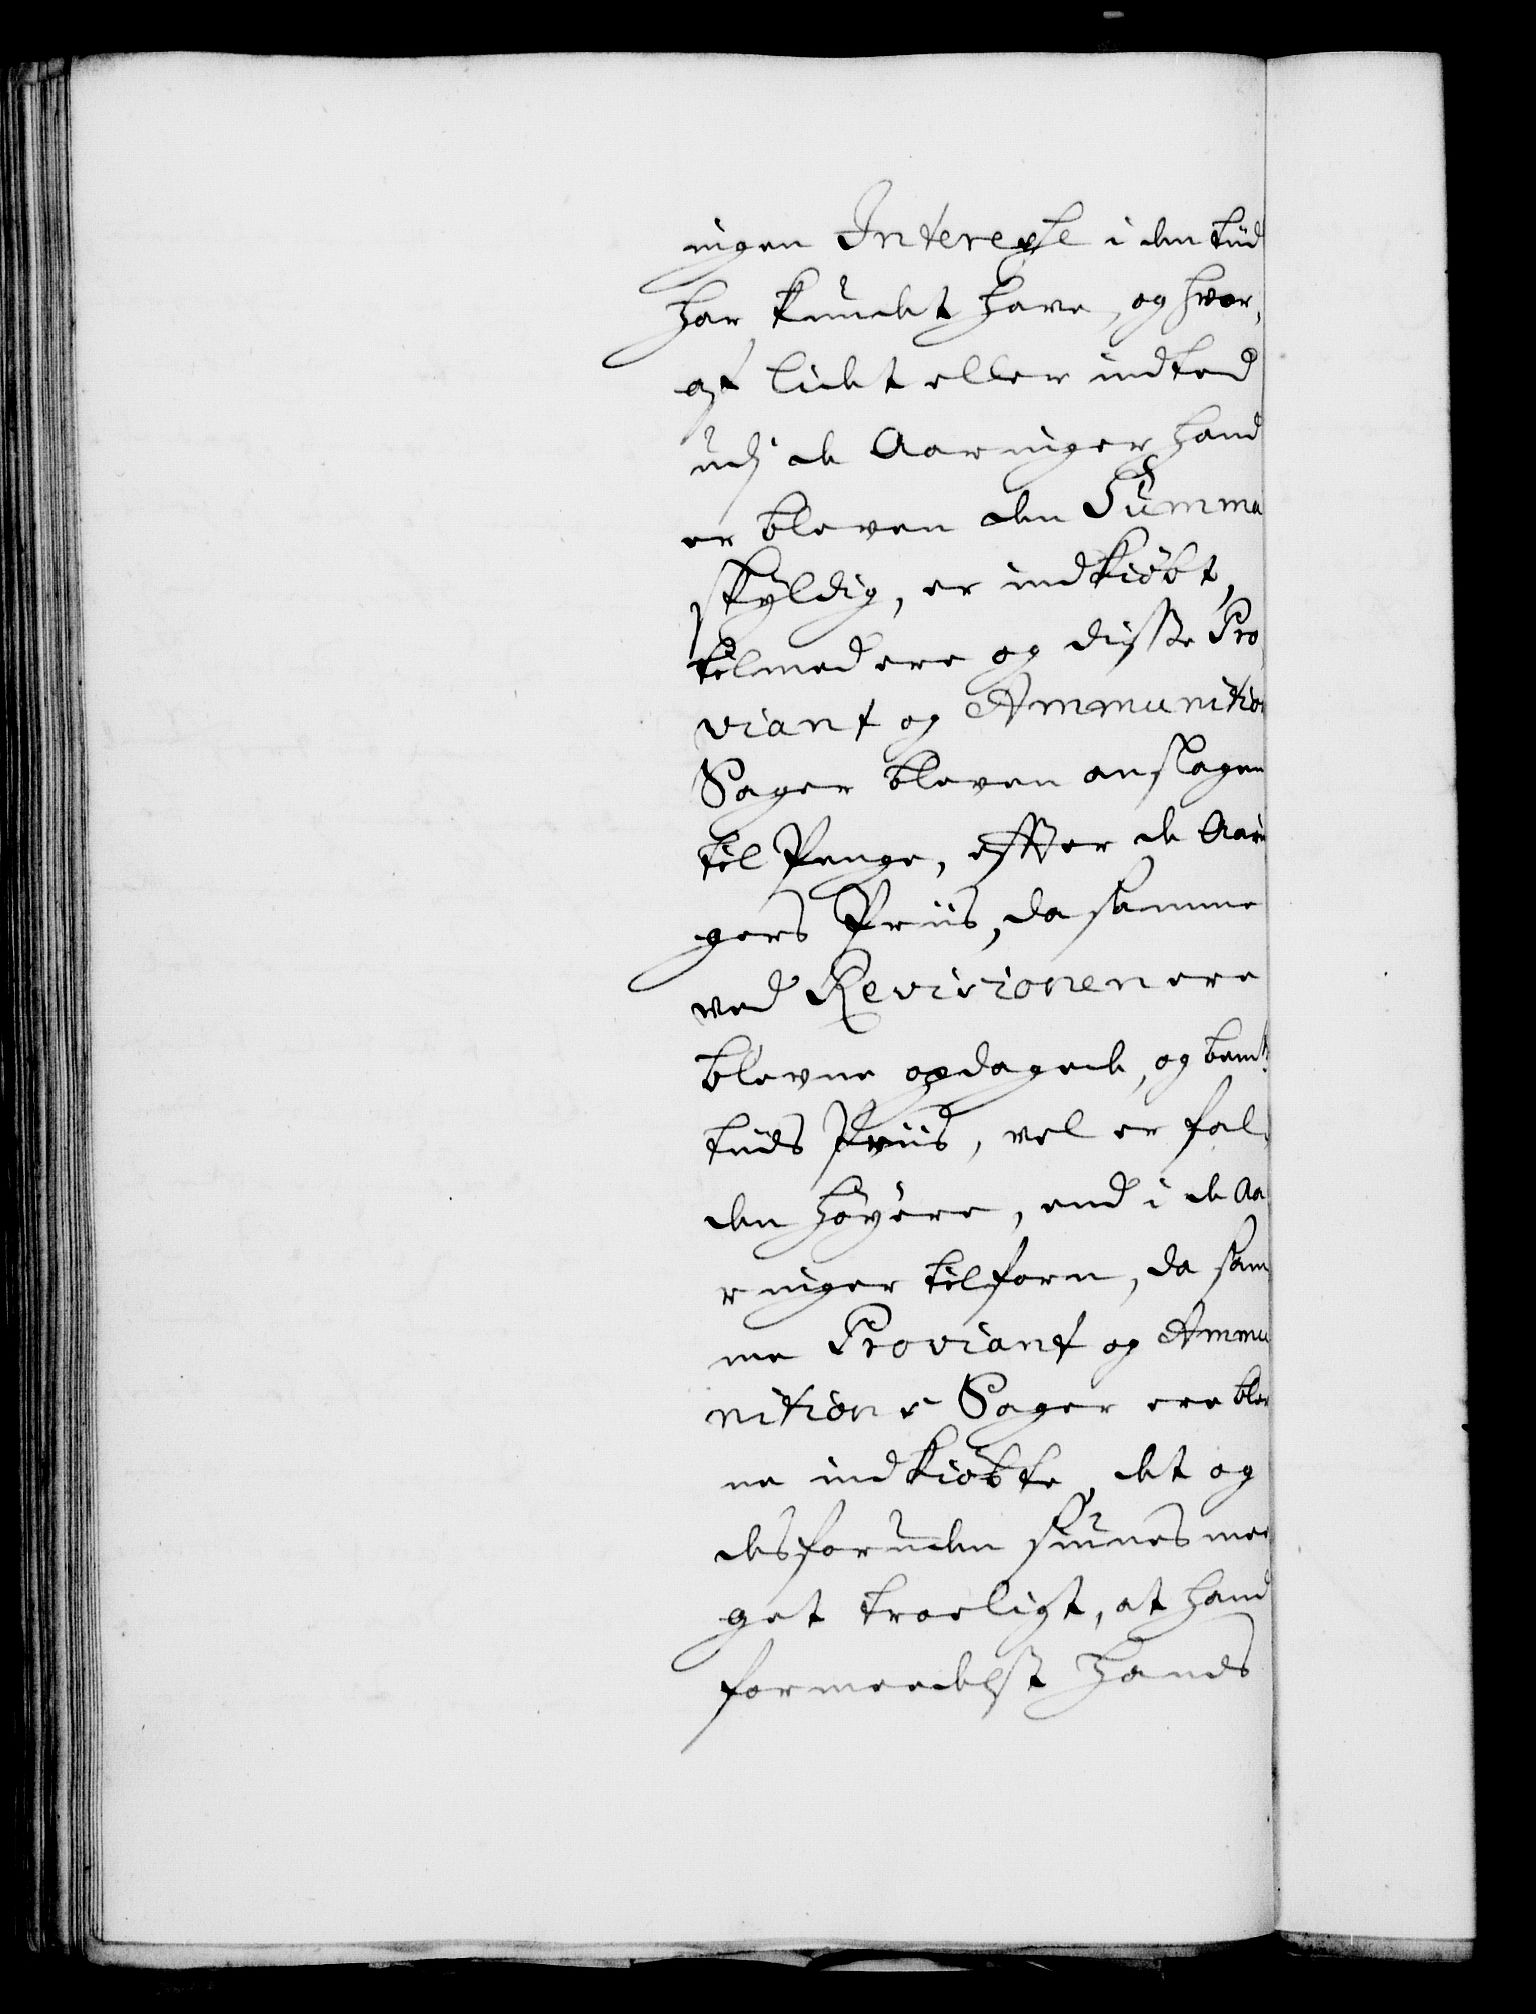 ingen Interesse i den tiid
har kundet have, og hvor,
af lidet eller indted
udj de Aaringer hand
er bleven den Summa
skyldig, er indkiöbt,
tilmed ere og disse Pro
viant og Ammunition
Sager bleven anslagen
til Penge, effter de Aarin
gers Priis, da samme
ved Revisionen ere
blevne opdagede, og bemte
tiids Priis, vel er fal,
den höyere, end i de Aa
ringer tilforn, da sam
me Proviant og Ammu
nitions Sager ere blev
ne indkiöbte, det og
desforuden siunes mee
get troeligt, at hand
formedelst hands